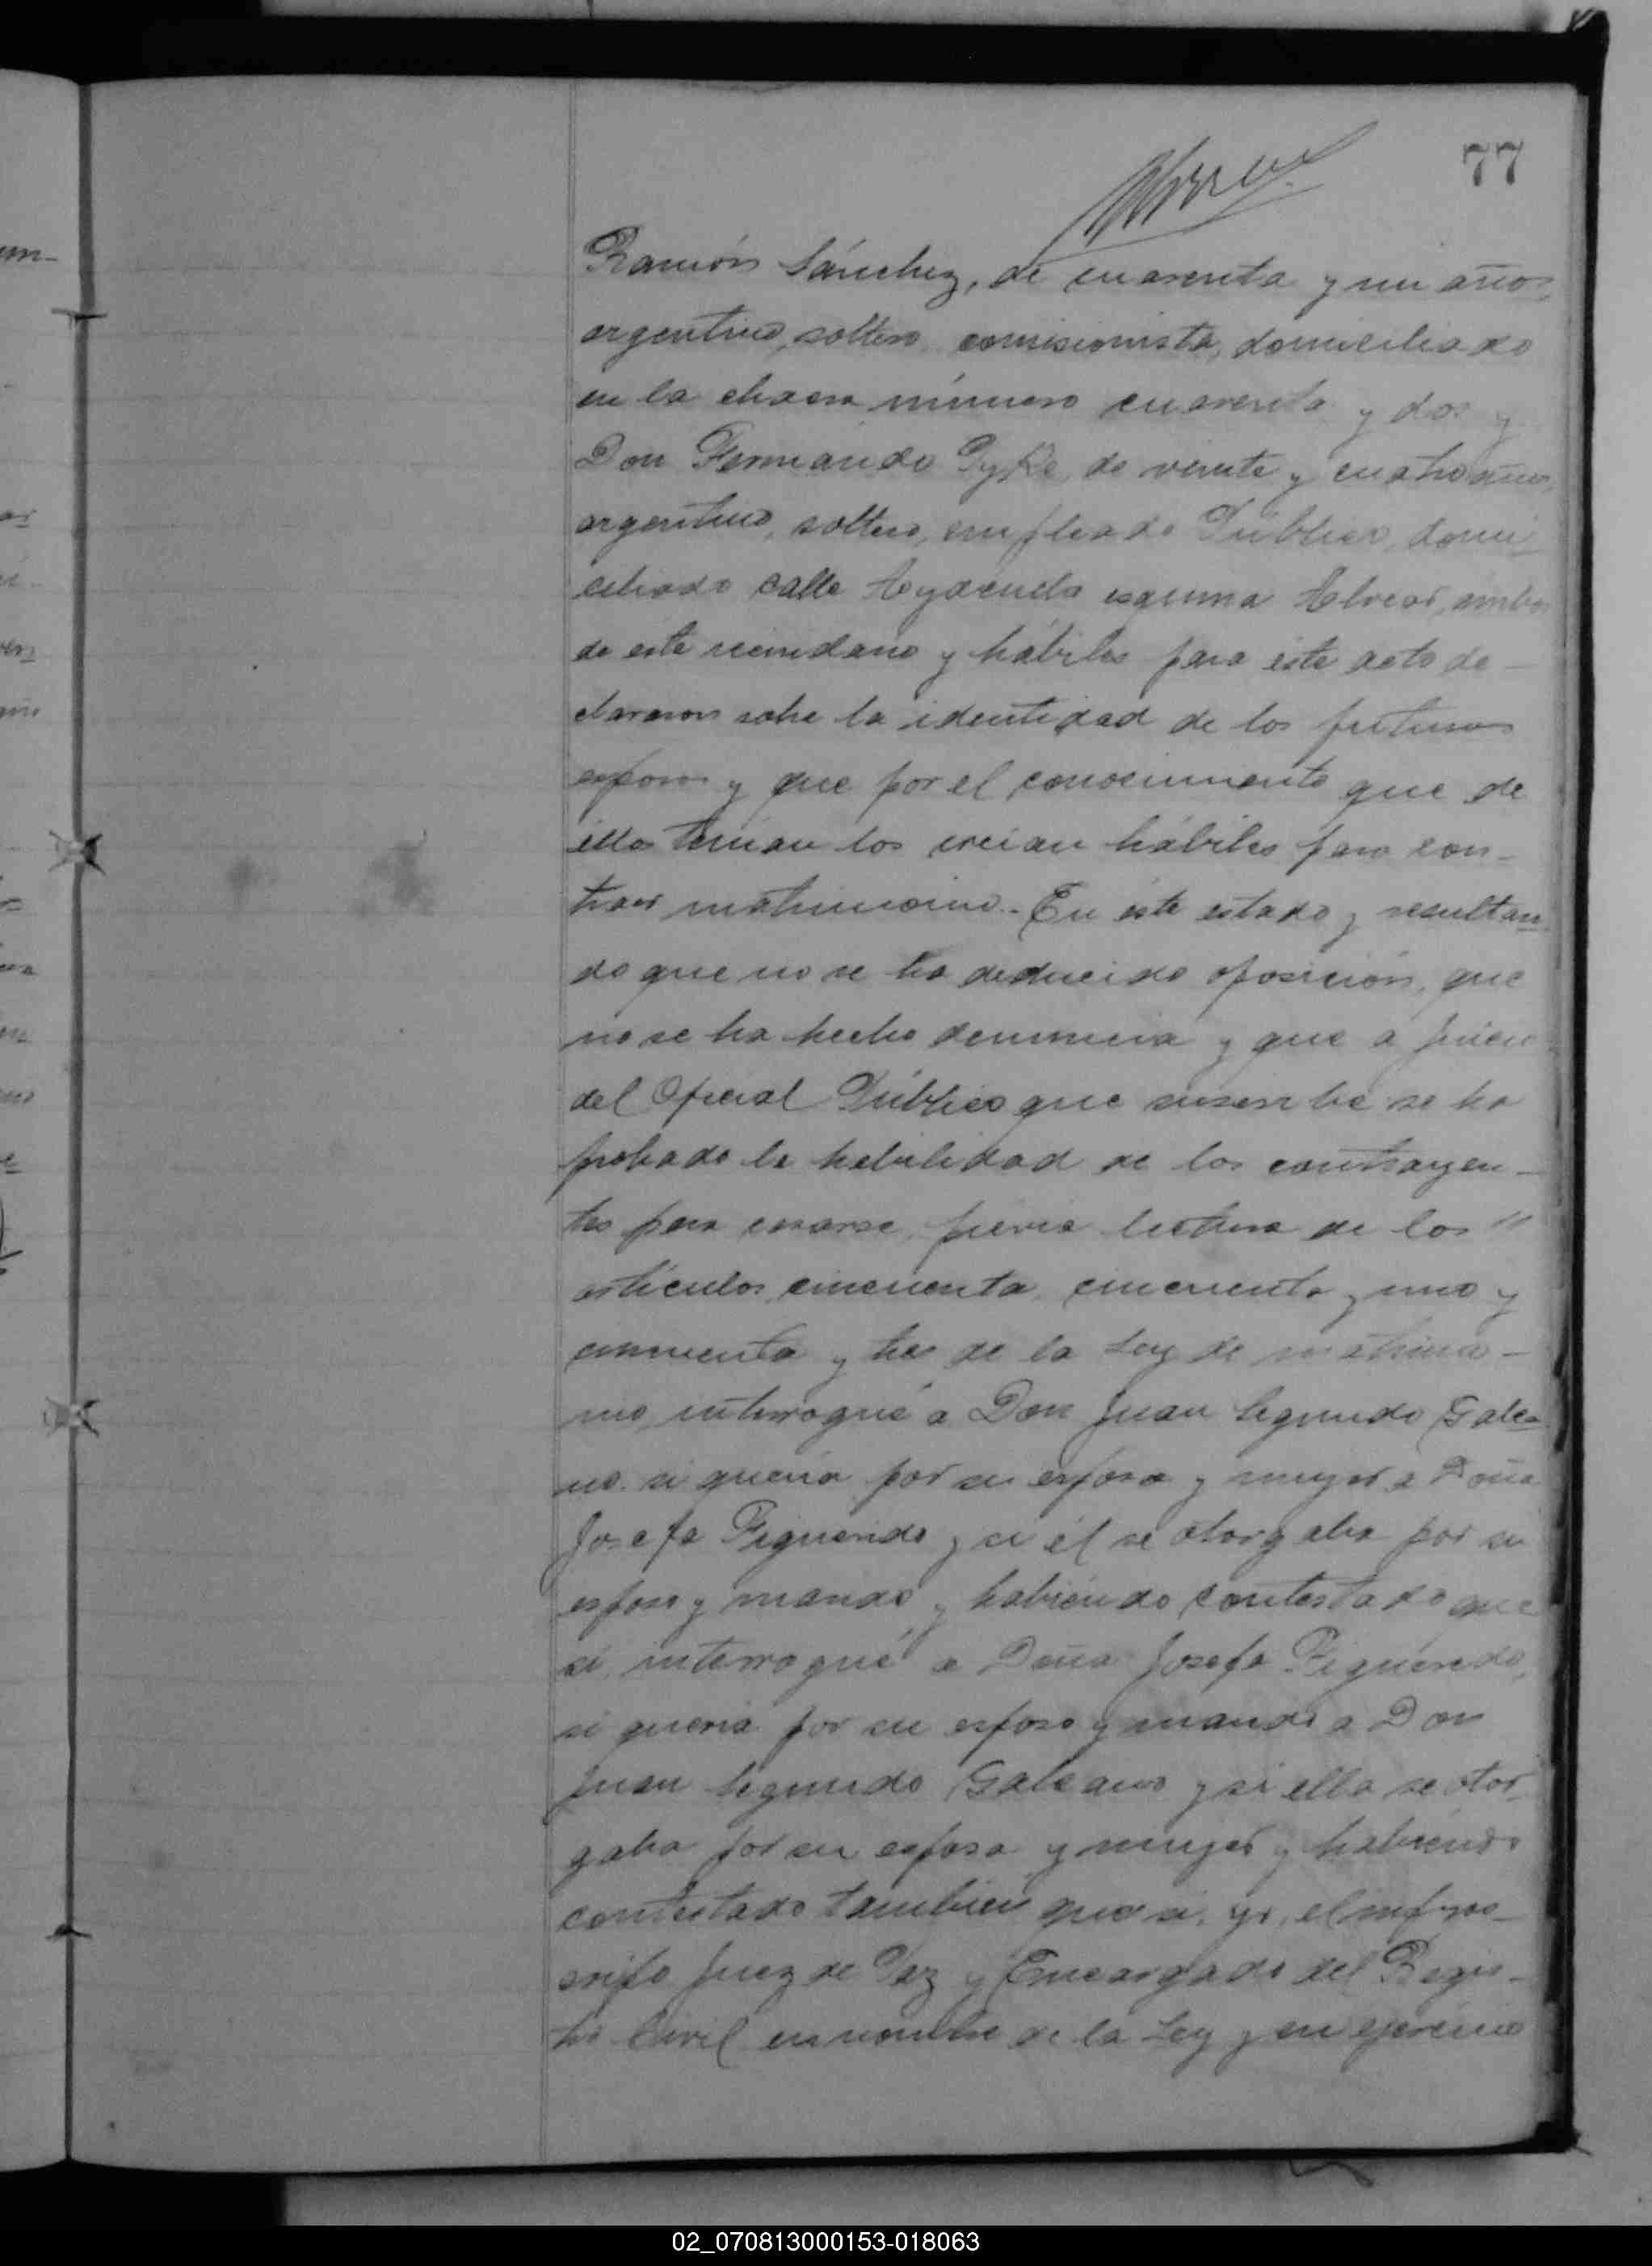 77
Ramón Sánchez, de cuarenta y un años,
argentino, soltero, comisionista, domiciliado
en la chacra número cuarenta y dos y
Don Fernando de veinte y cuatro años,
argentino, soltero, empleado Público, domi-
ciliado calle Ayacucho esquina Alvear, ambos
de este vecindario y hábiles para éste acto de-
clararon sobre la identidad de los futuros
esposos y que por el conocimiento que de
ellos tenían los creían hábiles para con-
traer matrimonio. En éste estado y resultan-
do que no se ha deducido oposición, que
no se ha hecho denuncia y que a juicio
del Oficial Público que suscribe se ha
probado la habilidad de los contrayen-
tes para casarse, previa lectura de los "
artículos cincuenta, cincuenta y uno y
cincuenta y tres de la Ley de matrimo-
nio, interrogué a Don Juan Segundo Galea-
no si quería por su esposa y mujer a Doña
Josefa Figueredo y si él se otorgaba por su
esposo y marido y habiendo contestado que
sí, interrogué a Doña Josefa Figueredo,
si quería por su esposo y marido a Don
Juan Segundo Galeano y si ella se otor-
gaba por su esposa y mujer y habiendo
contestado también que sí, yo, el infras-
cripto Juez de Paz y Encargado del Regis-
tro Civil en nombre de la Ley y en ejercicio
02_070813000153-018063